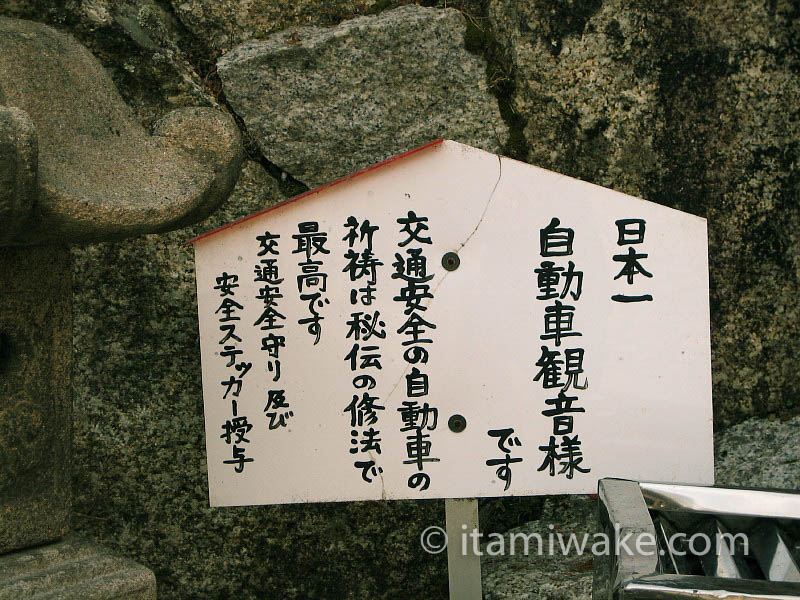 日本一
自動車観音様
です
交通安全の自動車の
祈祷は秘伝の修法で
最高です
交通安全守り及び
安全ステッカー授与
© itamiwake.com